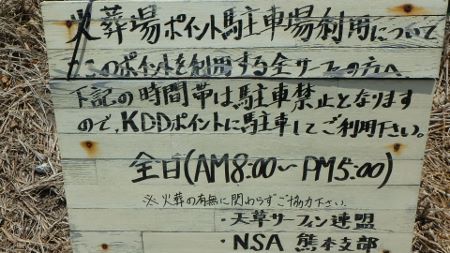 火葬場ポイント駐車場利用について
このポイントを利用する全サーファーの方へ
下記の時間帯は駐車禁止となります
ので、KDDポイントに駐車してご利用下さい。
全日(AM8:00～PM5:00)
※火葬の有無に関わらずご協力下さい。
・天草サーフィン連盟
・NSA 熊本支部